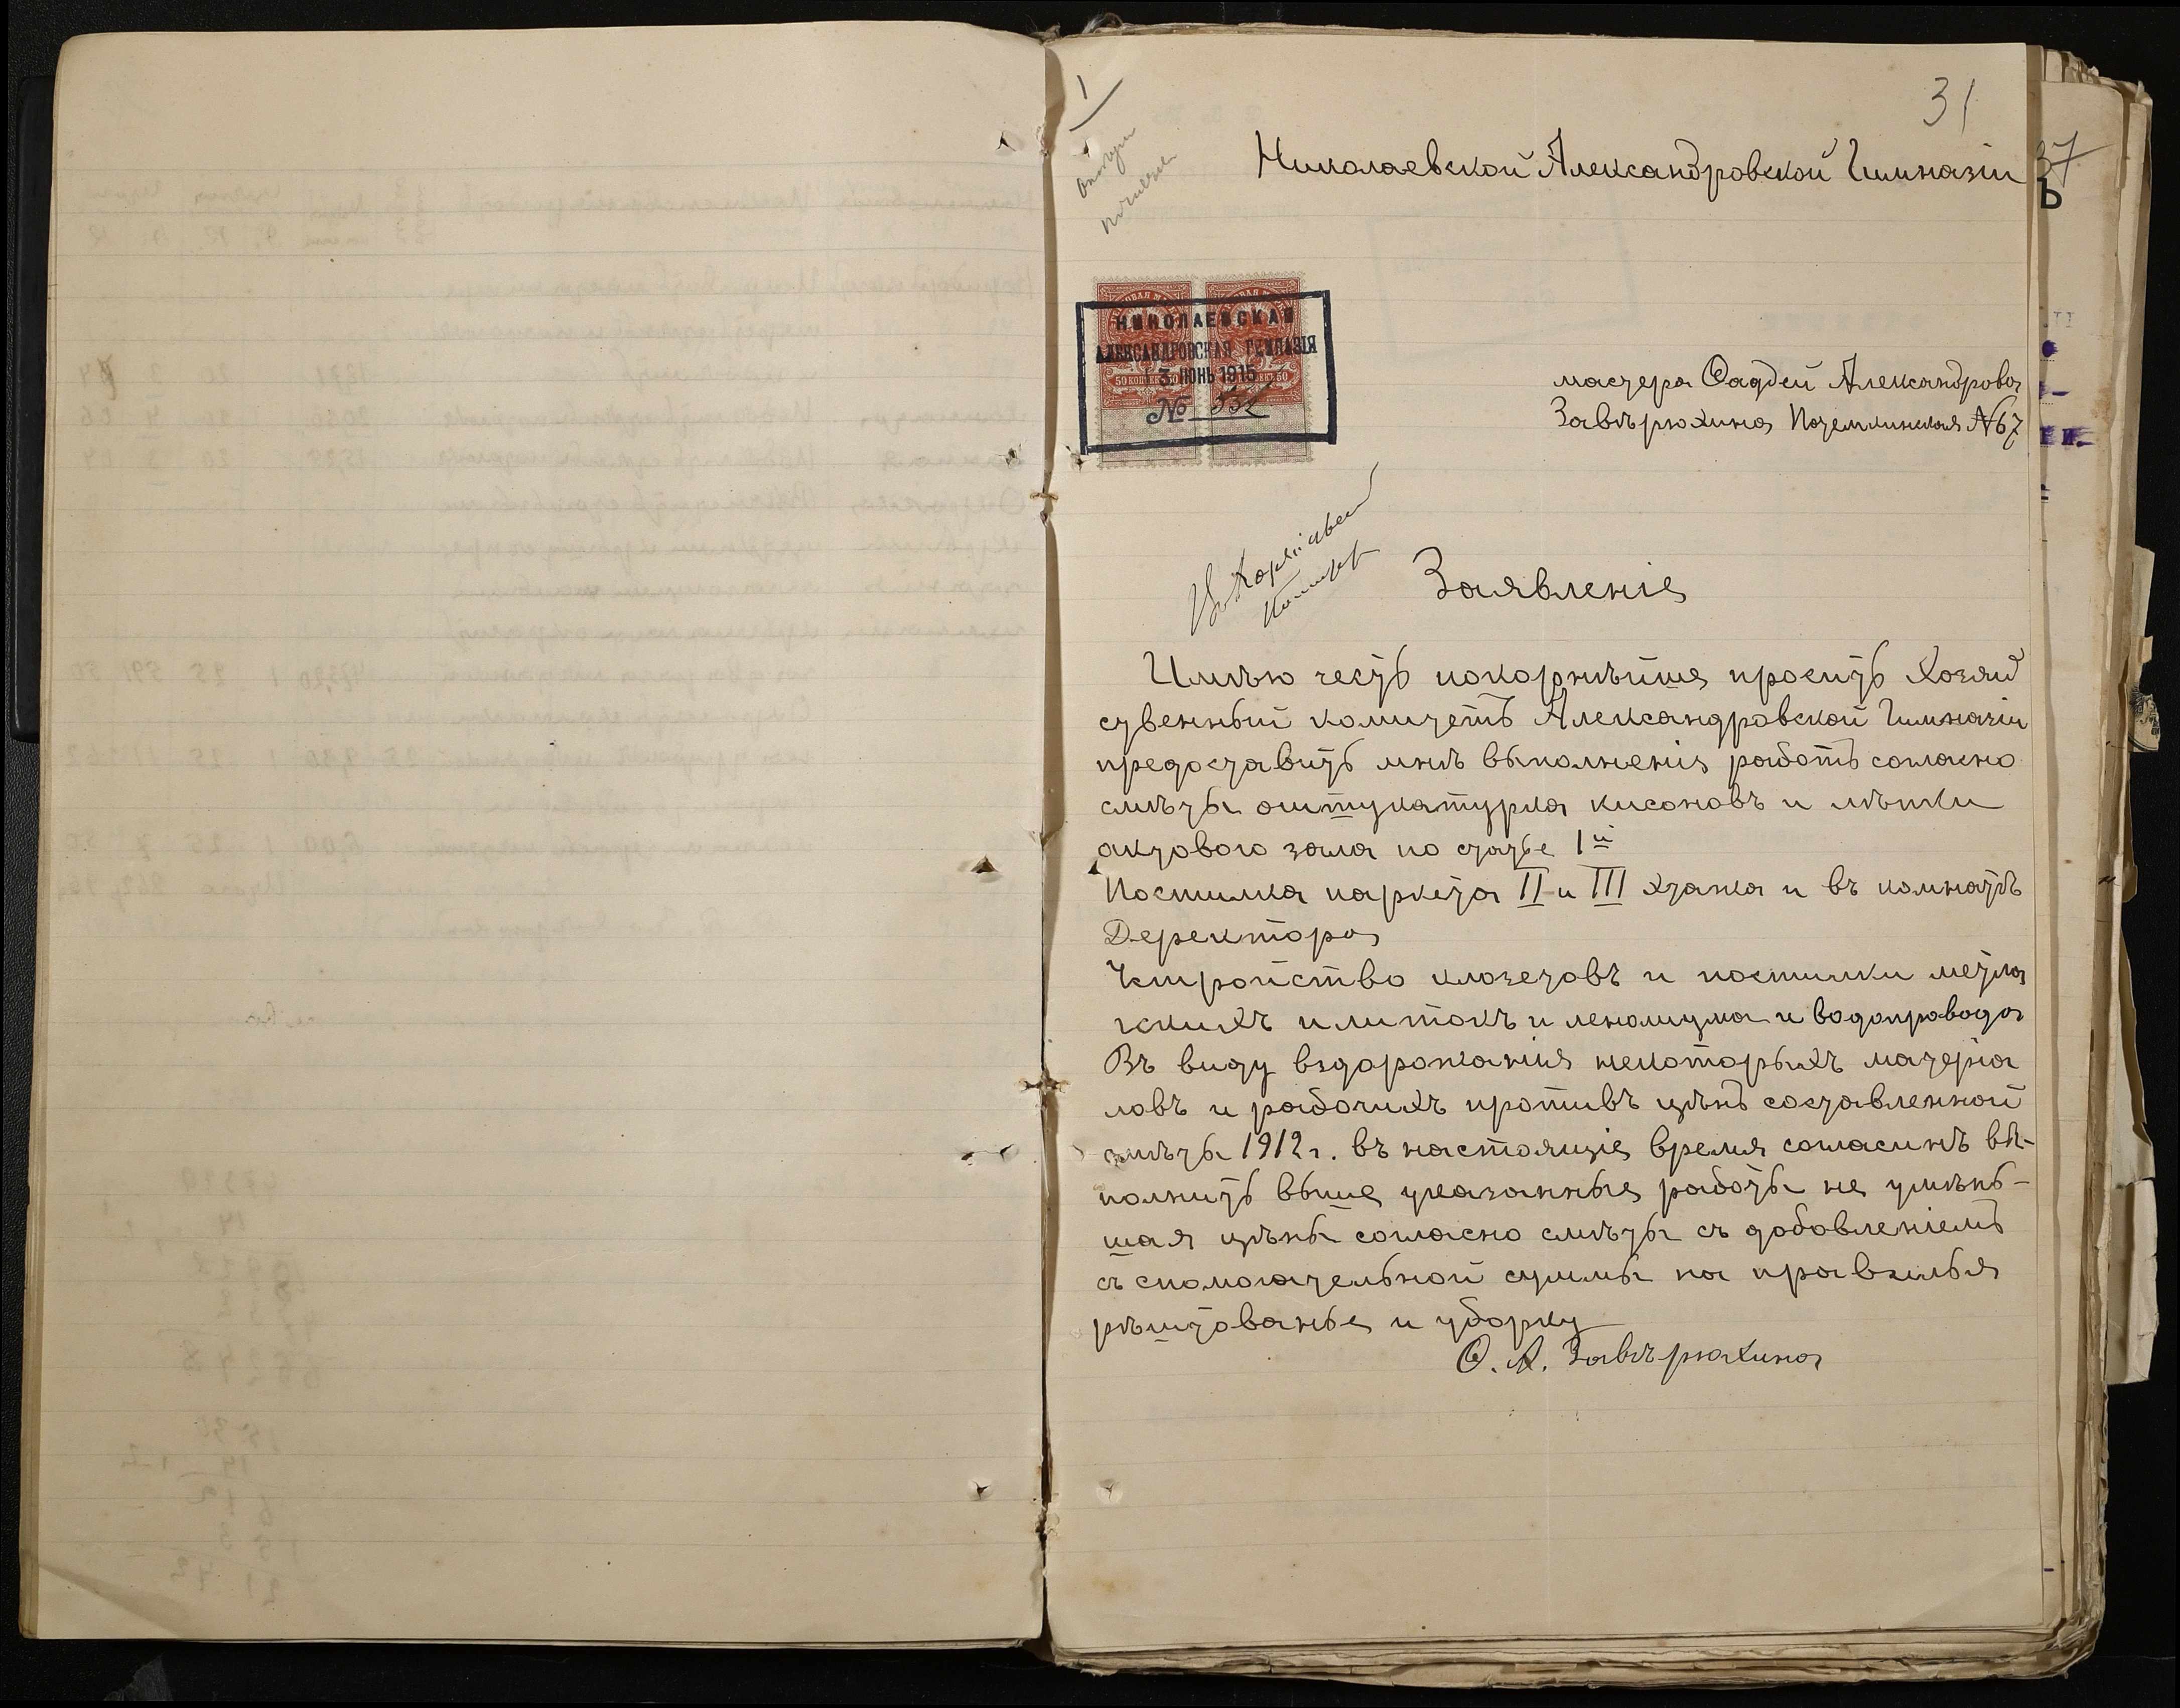 31
Николаевской Александровской Гимназіи
37
Ъ
НИКОЛАЕВСКАЯ
АЛЕКСАНДРОВСКАЯ ГИМНАЗІЯ
3 ИЮНЬ 1915
№ 552
мастера Фаддей Александрова
Завѣрюхина Потемкинская №67
Заявленіе
Имѣю честь покорнѣйше просить Хозяй
ственный комитетъ Александровской Гимназіи
предоставить мнѣ выполненія работъ согласно
смѣты оштукатурка кисоновъ и лѣпки
актового зала по статье 1й
Постилка паркета II и III хтажа и въ комнатѣ
Деректора
Устройство клозетовъ и постилки метла
хскихъ плитокъ и леналиума и водопровода
Въ виду вздорожанія некоторыхъ матеріа
ловъ и рабочихъ противъ цѣнъ составленной
смѣты 1912 г. въ настоящіе время согласинъ вы-
полнить выше указанные работы не умѣнь-
шая цѣны согласно смѣты съ добовленіемъ
съ спомогательной суммы на правилья
рѣштованье и уборку
Ф. А. Завѣрюхина